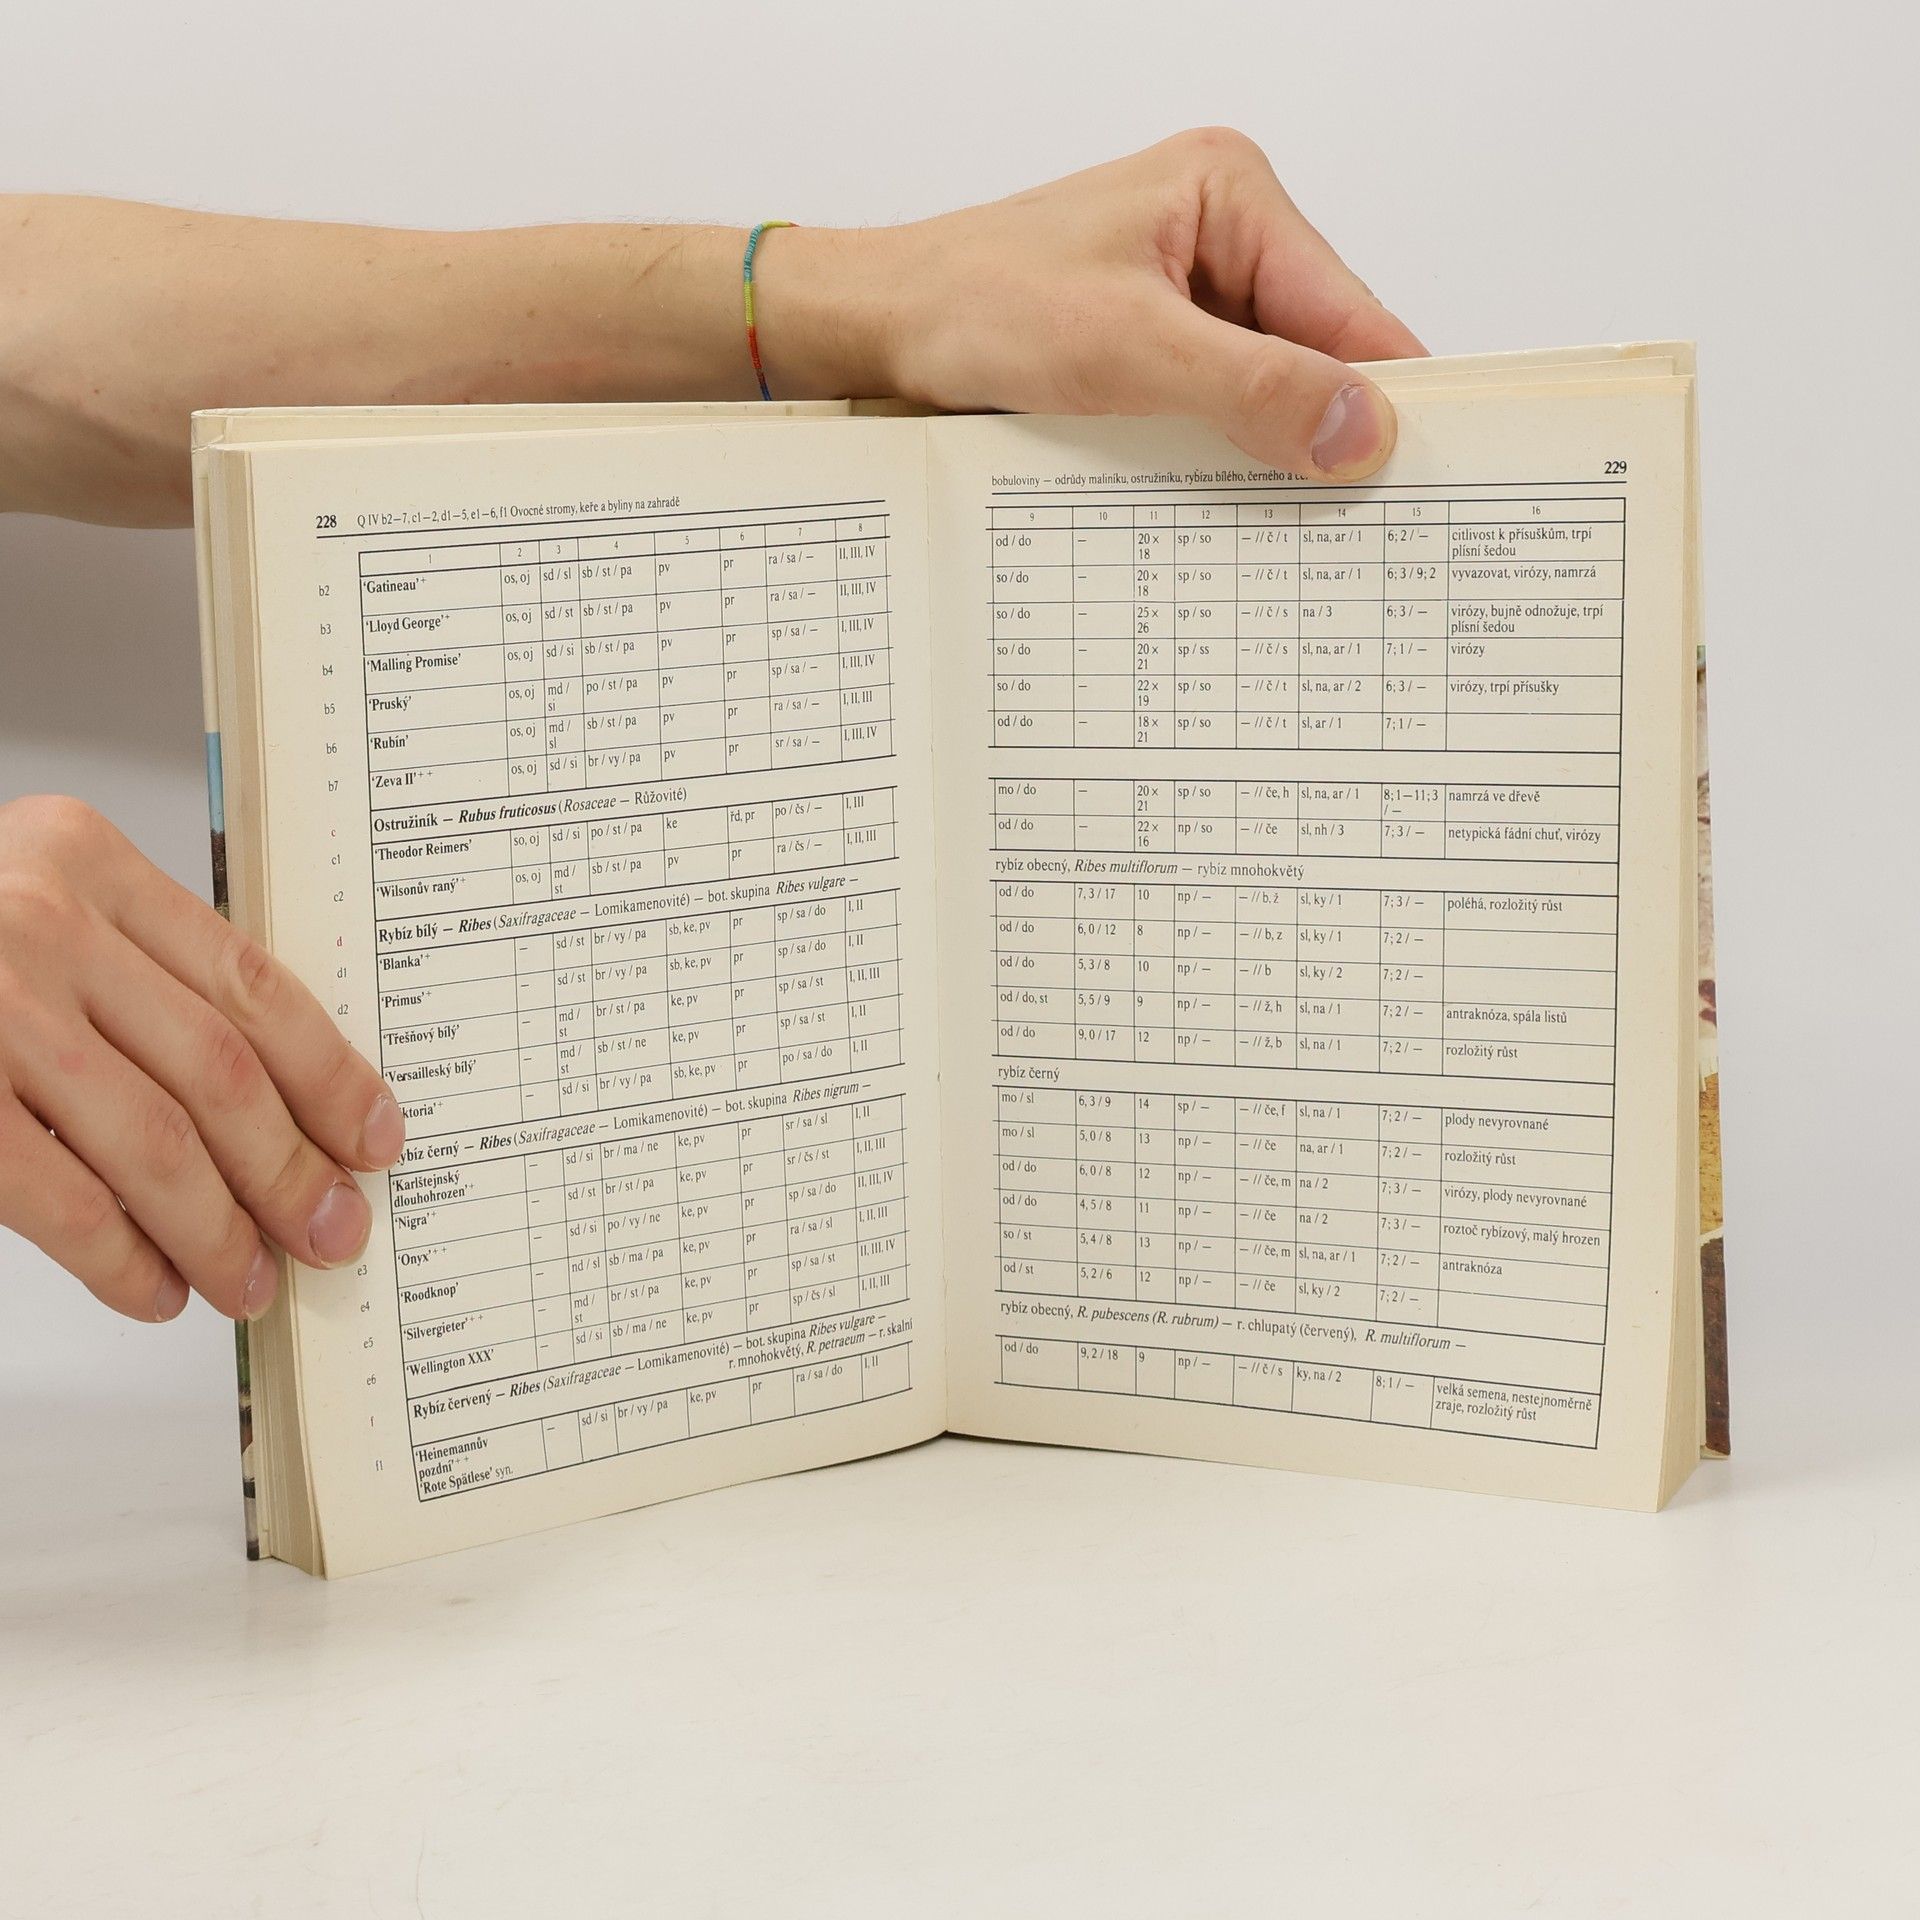 228 Q IV b2—7, c1—2, d1—5, e1—6, f1 Ovocné stromy, keře a byliny na zahradě
1 2 3 4 5 6 7 8
b2 ‘Gatineau’+ os, oj sd / sl sb / st / pa pv pr ra / sa / — II, III, IV
b3 ‘Lloyd George’+ os, oj sd / st sb / st / pa pv pr ra / sa / — II, III, IV
b4 ‘Malling Promise’ os, oj sd / si sb / st / pa pv pr sp / sa / — I, III, IV
b5 ‘Pruský’ os, oj md / si po / st / pa pv pr sp / sa / — I, III, IV
b6 ‘Rubín’ os, oj md / sl sb / st / pa pv pr ra / sa / — I, II, III
b7 ‘Zeva II’++ os, oj sd / si br / vy / pa pv pr sr / sa / — I, III, IV
c Ostružiník — Rubus fruticosus (Rosaceae — Růžovité)
c1 ‘Theodor Reimers’ so, oj sd / si po / st / pa ke řd, pr po / čs / — I, III
c2 ‘Wilsonův raný’+ os, oj md / st sb / st / pa pv pr ra / čs / — I, II, III
d Rybíz bílý — Ribes (Saxifragaceae — Lomikamenovité) — bot. skupina Ribes vulgare —
d1 ‘Blanka’+ — sd / st br / vy / pa sb, ke, pv pr sp / sa / do I, II
d2 ‘Primus’+ — sd / st br / vy / pa sb, ke, pv pr sp / sa / do I, II
‘Třešňový bílý’ — md / st br / st / pa ke, pv pr sp / sa / st I, II, III
‘Versailleský bílý’ — md / st sb / st / ne ke, pv pr sp / sa / st I, II
ktoria’+ — sd / si br / vy / pa sb, ke, pv pr po / sa / do I, II
ybíz černý — Ribes (Saxifragaceae — Lomikamenovité) — bot. skupina Ribes nigrum —
‘Karlštejnský — sd / si br / ma / ne ke, pv pr sr / sa / sl I, II
dlouhohrozen’+
‘Nigra’+ — sd / st br / st / pa ke, pv pr sr / čs / st I, II, III
e3 ‘Onyx’++ — sd / si po / vy / ne ke, pv pr sp / sa / do II, III, IV
e4 ‘Roodknop’ — nd / sl sb / ma / pa ke, pv pr ra / sa / sl I, II, III
e5 ‘Silvergieter’++ — md / st br / st / pa ke, pv pr sp / sa / st II, III, IV
e6 ‘Wellington XXX’ — sd / si sb / ma / ne ke, pv pr sp / čs / sl I, II, III
f Rybíz červený — Ribes (Saxifragaceae — Lomikamenovité) — bot. skupina Ribes vulgare —
r. mnohokvětý, R. petraeum — r. skalní
f1 ‘Heinemannův — sd / si br / vy / pa ke, pv pr ra / sa / do I, II
pozdní’++
‘Rote Spätlese’ syn.
bobuloviny — odrůdy maliníku, ostružiníku, rybízu bílého, černého a 229
9 10 11 12 13 14 15 16
od / do — 20 × 18 sp / so — // č / t sl, na, ar / 1 6; 2 / — citlivost k přísuškům, trpí
plísní šedou
so / do — 20 × 18 sp / so — // č / t sl, na, ar / 1 6; 3 / 9; 2 vyvazovat, virózy, namrzá
so / do — 25 × 26 sp / so — // č / s na / 3 6; 3 / — virózy, bujně odnožuje, trpí
plísní šedou
so / do — 20 × 21 sp / ss — // č / s sl, na, ar / 1 7; 1 / — virózy
so / do — 22 × 19 sp / so — // č / t sl, na, ar / 2 6; 3 / — virózy, trpí přísušky
od / do — 18 × 21 sp / so — // č / t sl, ar / 1 7; 1 / —
mo / do — 20 × 21 sp / so — // če, h sl, na, ar / 1 8; 1—11; 3 / — namrzá ve dřevě
od / do — 22 × 16 np / so — // če sl, nh / 3 7; 3 / — netypická fádní chuť, virózy
rybíz obecný, Ribes multiflorum — rybíz mnohokvětý
od / do 7, 3 / 17 10 np / — — // b, ž sl, ky / 1 7; 3 / — poléhá, rozložitý růst
od / do 6, 0 / 12 8 np / — — // b, z sl, ky / 1 7; 2 / —
od / do 5, 3 / 8 10 np / — — // b sl, ky / 2 7; 2 / —
od / do, st 5, 5 / 9 9 np / — — // ž, h sl, na / 1 7; 2 / — antraknóza, spála listů
od / do 9, 0 / 17 12 np / — — // ž, b sl, na / 1 7; 2 / — rozložitý růst
rybíz černý
mo / sl 6, 3 / 9 14 sp / — — // če, f sl, na / 1 7; 2 / — plody nevyrovnané
mo / sl 5, 0 / 8 13 np / — — // če na, ar / 1 7; 2 / — rozložitý růst
od / do 6, 0 / 8 12 np / — — // če, m na / 2 7; 3 / — virózy, plody nevyrovnané
od / do 4, 5 / 8 11 np / — — // če na / 2 7; 3 / — roztoč rybízový, malý hrozen
so / st 5, 4 / 8 13 np / — — // če, m sl, na, ar / 1 7; 2 / — antraknóza
od / st 5, 2 / 6 12 np / — — // če sl, ky / 2 7; 2 / —
rybíz obecný, R. pubescens (R. rubrum) — r. chlupatý (červený), R. multiflorum —
od / do 9, 2 / 18 9 np / — — // č / s ky, na / 2 8; 1 / — velká semena, nestejnoměrně
zraje, rozložitý růst